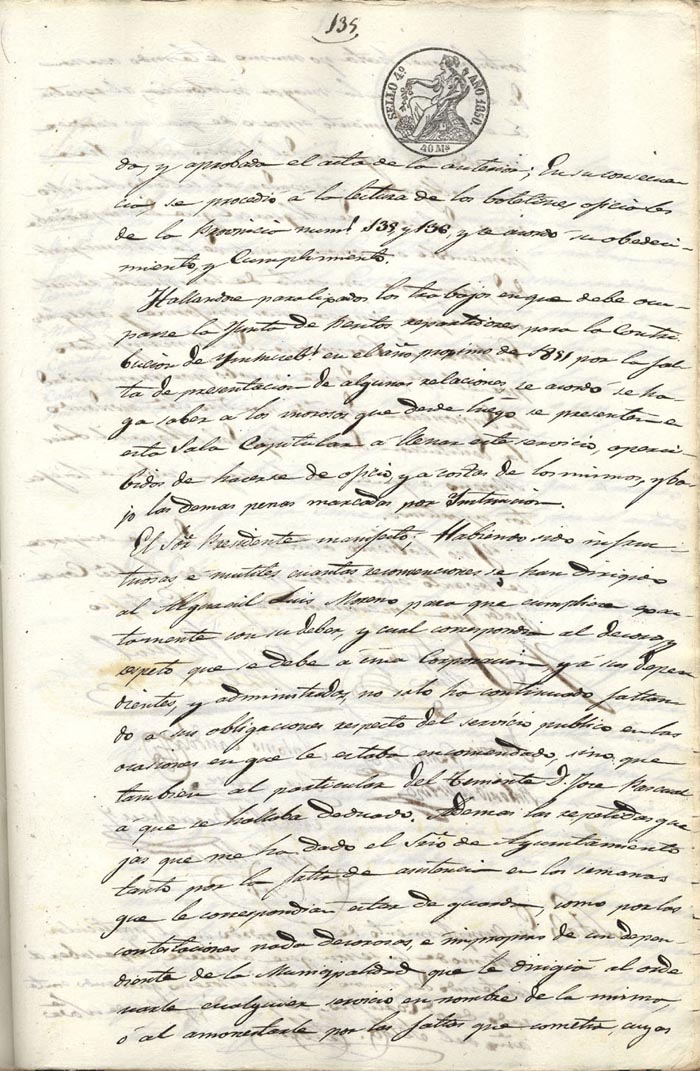 135
SELLO 4º AÑO 1850.
40 Ms
da, y aprobada el acta de la anterior; En su consecuen
cia, se procedió á la lectura de los boletines oficiales
de la Provincia num.s 135 y 136, y se acordó su obedeci
miento, y Cumplimiento.
Hallandose paralizados los trabajos en que debe ocu
parse la Junta de Peritos repartidores para la Contri
bucion de Ynmueb.s en el año proximo de 1851 por la fal
ta de presentacion de algunas relaciones se acordó se ha
ga saber a los morosos que desde luego se presenten e
esta Sala Capitular a llenar este servicio, aperci
bidos de hacerse de oficio, y a costas de los mismos, y ba
jo las demas penas marcadas por Instruccion.
El Sor Presidente manifestó: Habiendo sido infruc
tuosas é inutiles cuantas reconvenciones se han dirigido
al Alguacil Luis Moreno para que cumpliera exac
tamente con su deber, y cual correspondia al decoro y
respeto que se debe á una Corporacion y á sus depen
dientes, y administrados, no solo ha continuado faltan
do a sus obligaciones respecto del servicio publico en las
ocasiones en que le estaba encomendado, sino que
tambien al particular del Teniente D. Jose Pascual
a que se hallaba dedicado. Ademas las repetidas que
jas que me ha dado el Srio de Ayuntamiento
tanto por la falta de asistencia en las semanas
que le correspondian estar de guardia, como por las
contestaciones nada decorosas, e impropias de un depen
diente de la Municipalidad que le dirigia al orde
narle cualquier servicio en nombre de la misma,
ó al amonestarle por las faltas que cometia, cuyas